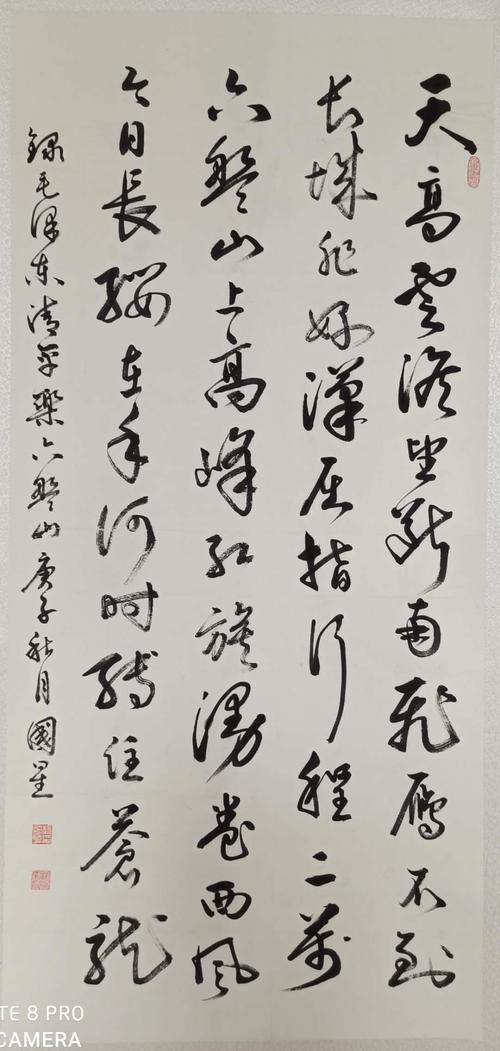 天高雲淡望斷南飛雁不到
長城非好漢屈指行程二萬
六盤山上高峰紅旗漫卷西風
今日長纓在手何時縛住蒼龍
錄毛澤東清平樂六盤山庚子秋月國星
TE 8 PRO
CAMERA